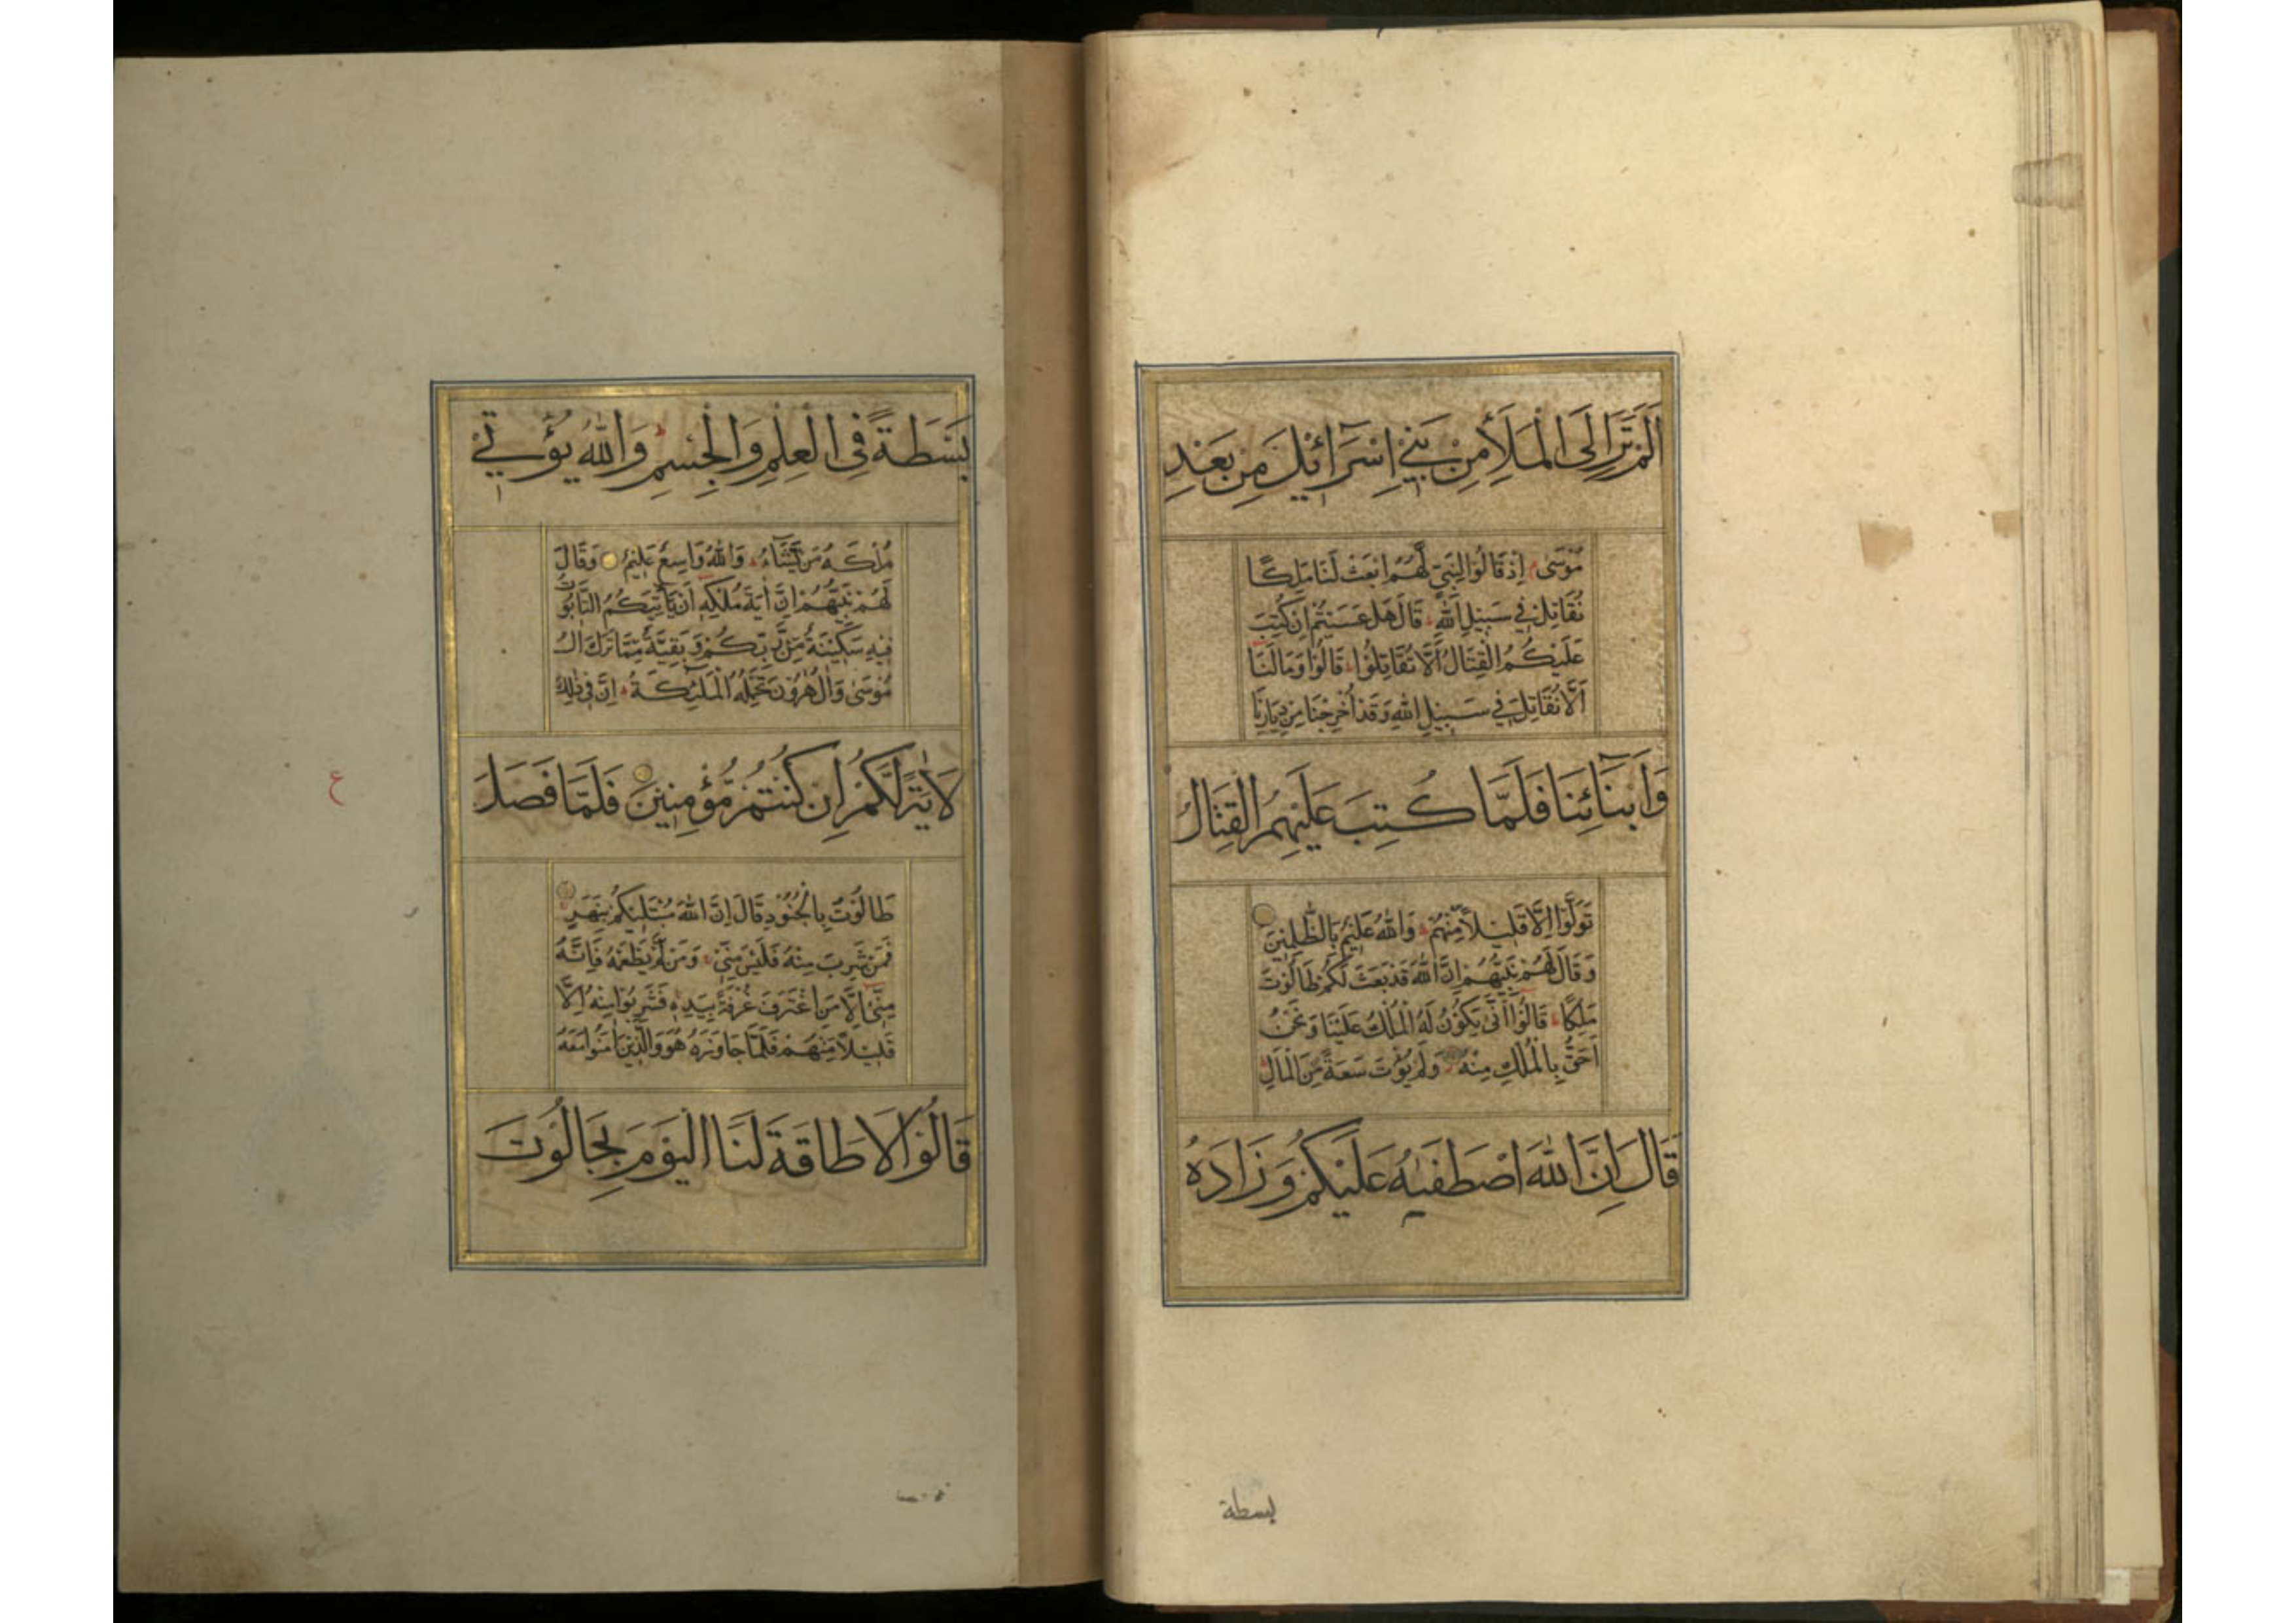 اَلَمْ تَرَ اِلَى الْمَلَأِ مِنْ بَنٖي اِسْرَآئٖلَ مِنْ بَعْدِ
مُوسٰى اِذْ قَالُوا لِنَبِيٍّ لَهُمُ ابْعَثْ لَنَا مَلِكًا
نُقَاتِلْ فٖي سَبٖيلِ اللّٰهِ قَالَ هَلْ عَسَيْتُمْ اِنْ كُتِبَ
عَلَيْكُمُ الْقِتَالُ اَلَّا تُقَاتِلُوا قَالُوا وَمَا لَنَا
اَلَّا نُقَاتِلَ فٖي سَبٖيلِ اللّٰهِ وَقَدْ اُخْرِجْنَا مِنْ دِيَارِنَا
وَاَبْنَآئِنَا فَلَمَّا كُتِبَ عَلَيْهِمُ الْقِتَالُ
تَوَلَّوْا اِلَّا قَلٖيلًا مِّنْهُمْ وَاللّٰهُ عَلٖيمٌ بِالظّٰلِمٖينَ
وَقَالَ لَهُمْ نَبِيُّهُمْ اِنَّ اللّٰهَ قَدْ بَعَثَ لَكُمْ طَالُوتَ
مَلِكًا قَالُوا اَنّٰى يَكُونُ لَهُ الْمُلْكُ عَلَيْنَا وَنَحْنُ
اَحَقُّ بِالْمُلْكِ مِنْهُ وَلَمْ يُؤْتَ سَعَةً مِّنَ الْمَالِ
قَالَ اِنَّ اللّٰهَ اصْطَفٰيهُ عَلَيْكُمْ وَزَادَهُ
بسطة
بَسْطَةً فِى الْعِلْمِ وَالْجِسْمِ وَاللّٰهُ يُؤْتٖي
مُلْكَهُ مَنْ يَّشَآءُ وَاللّٰهُ وَاسِعٌ عَلٖيمٌ وَقَالَ
لَهُمْ نَبِيُّهُمْ اِنَّ اٰيَةَ مُلْكِهٖ اَنْ يَأْتِيَكُمُ التَّابُوتُ
فٖيهِ سَكٖينَةٌ مِّنْ رَّبِّكُمْ وَبَقِيَّةٌ مِمَّا تَرَكَ اٰلُ
مُوسٰى وَاٰلُ هٰرُونَ تَحْمِلُهُ الْمَلٰٓئِكَةُ اِنَّ فٖي ذٰلِكَ
لَاٰيَةً لَّكُمْ اِنْ كُنْتُمْ مُّؤْمِنٖينَ فَلَمَّا فَصَلَ
ع
طَالُوتُ بِالْجُنُودِ قَالَ اِنَّ اللّٰهَ مُبْتَلٖيكُمْ بِنَهَرٍ
فَمَنْ شَرِبَ مِنْهُ فَلَيْسَ مِنّٖي وَمَنْ لَّمْ يَطْعَمْهُ فَاِنَّهُ
مِنّٖٓي اِلَّا مَنِ اغْتَرَفَ غُرْفَةً بِيَدِهٖ فَشَرِبُوا مِنْهُ اِلَّا
قَلٖيلًا مِّنْهُمْ فَلَمَّا جَاوَزَهُ هُوَ وَالَّذٖينَ اٰمَنُوا مَعَهُ
قَالُوا لَا طَاقَةَ لَنَا الْيَوْمَ بِجَالُوتَ